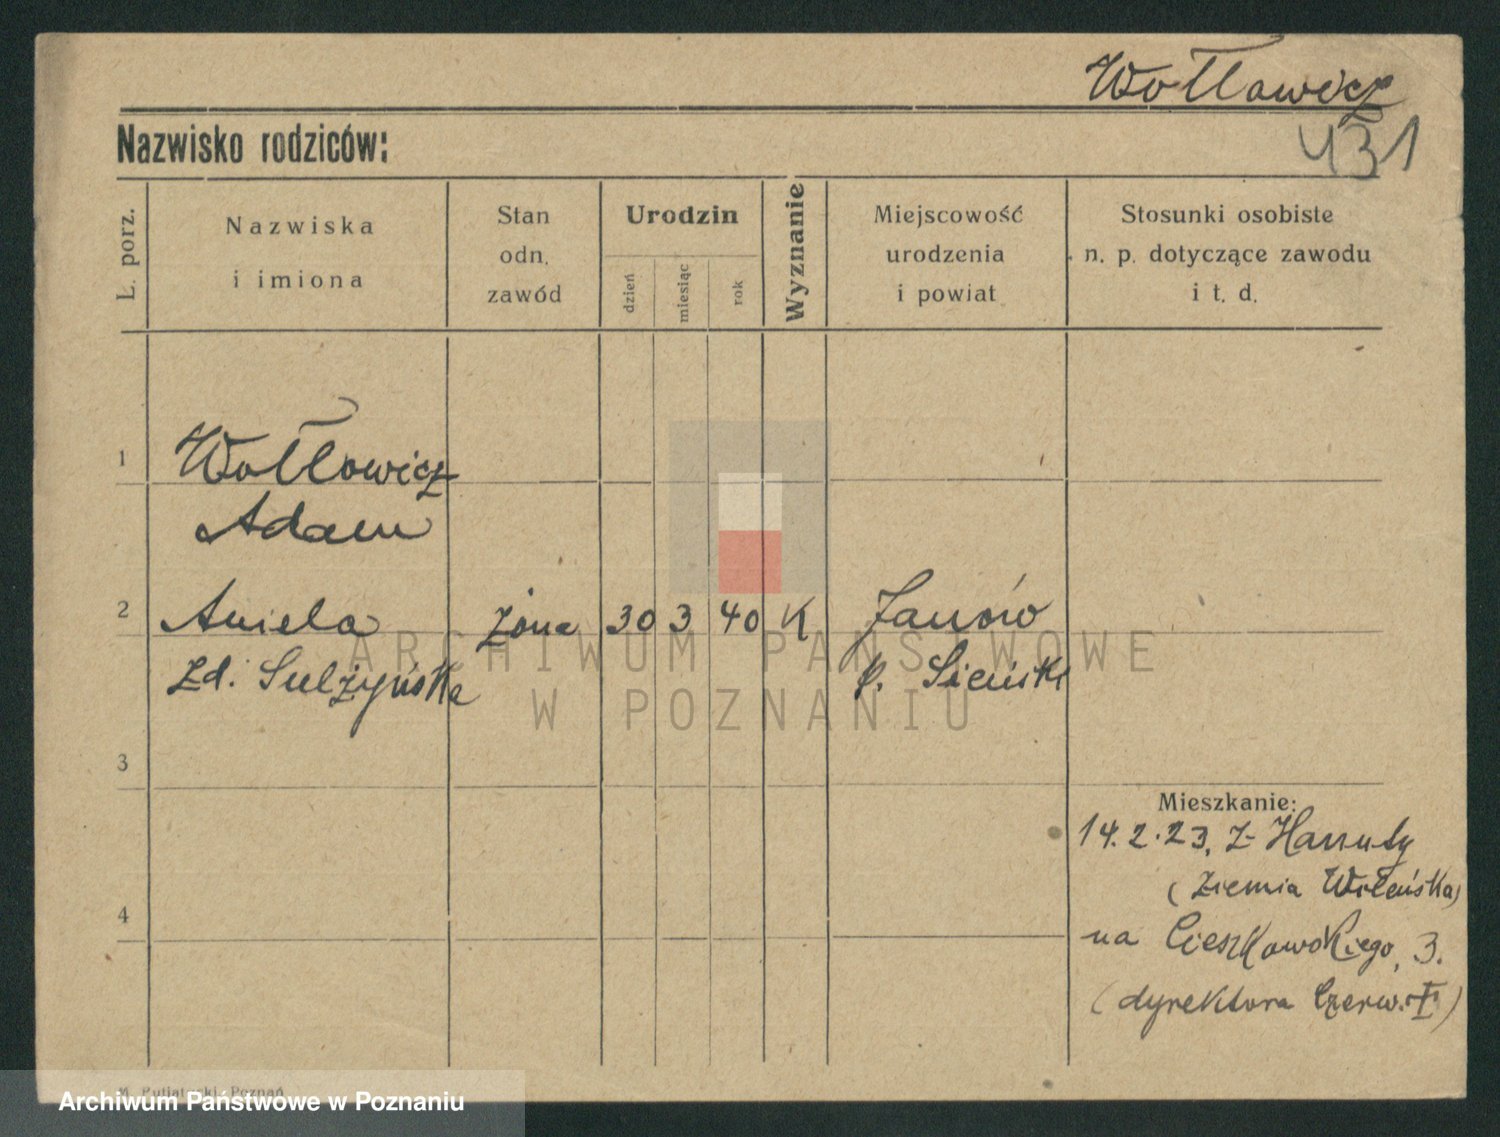 Wołłowicz
Nazwisko rodziców:
431
L. porz.
Nazwiska
i imiona
Stan
odn.
zawód
Urodzin
dzień
miesiąc
rok
Wyznanie
Miejscowość
urodzenia
i powiat
Stosunki osobiste
n. p. dotyczące zawodu
i t. d.
1 Wołłowicz
Adam
2 Aniela żona 30 3 40 K Janów
zd. Sulżyńska p.
ARCHIWUM PAŃSTWOWE
W POZNANIU
3
Mieszkanie:
14.2.23, z Hanuty
(ziemia Wileńska)
4
na Cieszkowskiego, 3.
(dyrektora
Archiwum Państwowe w Poznaniu